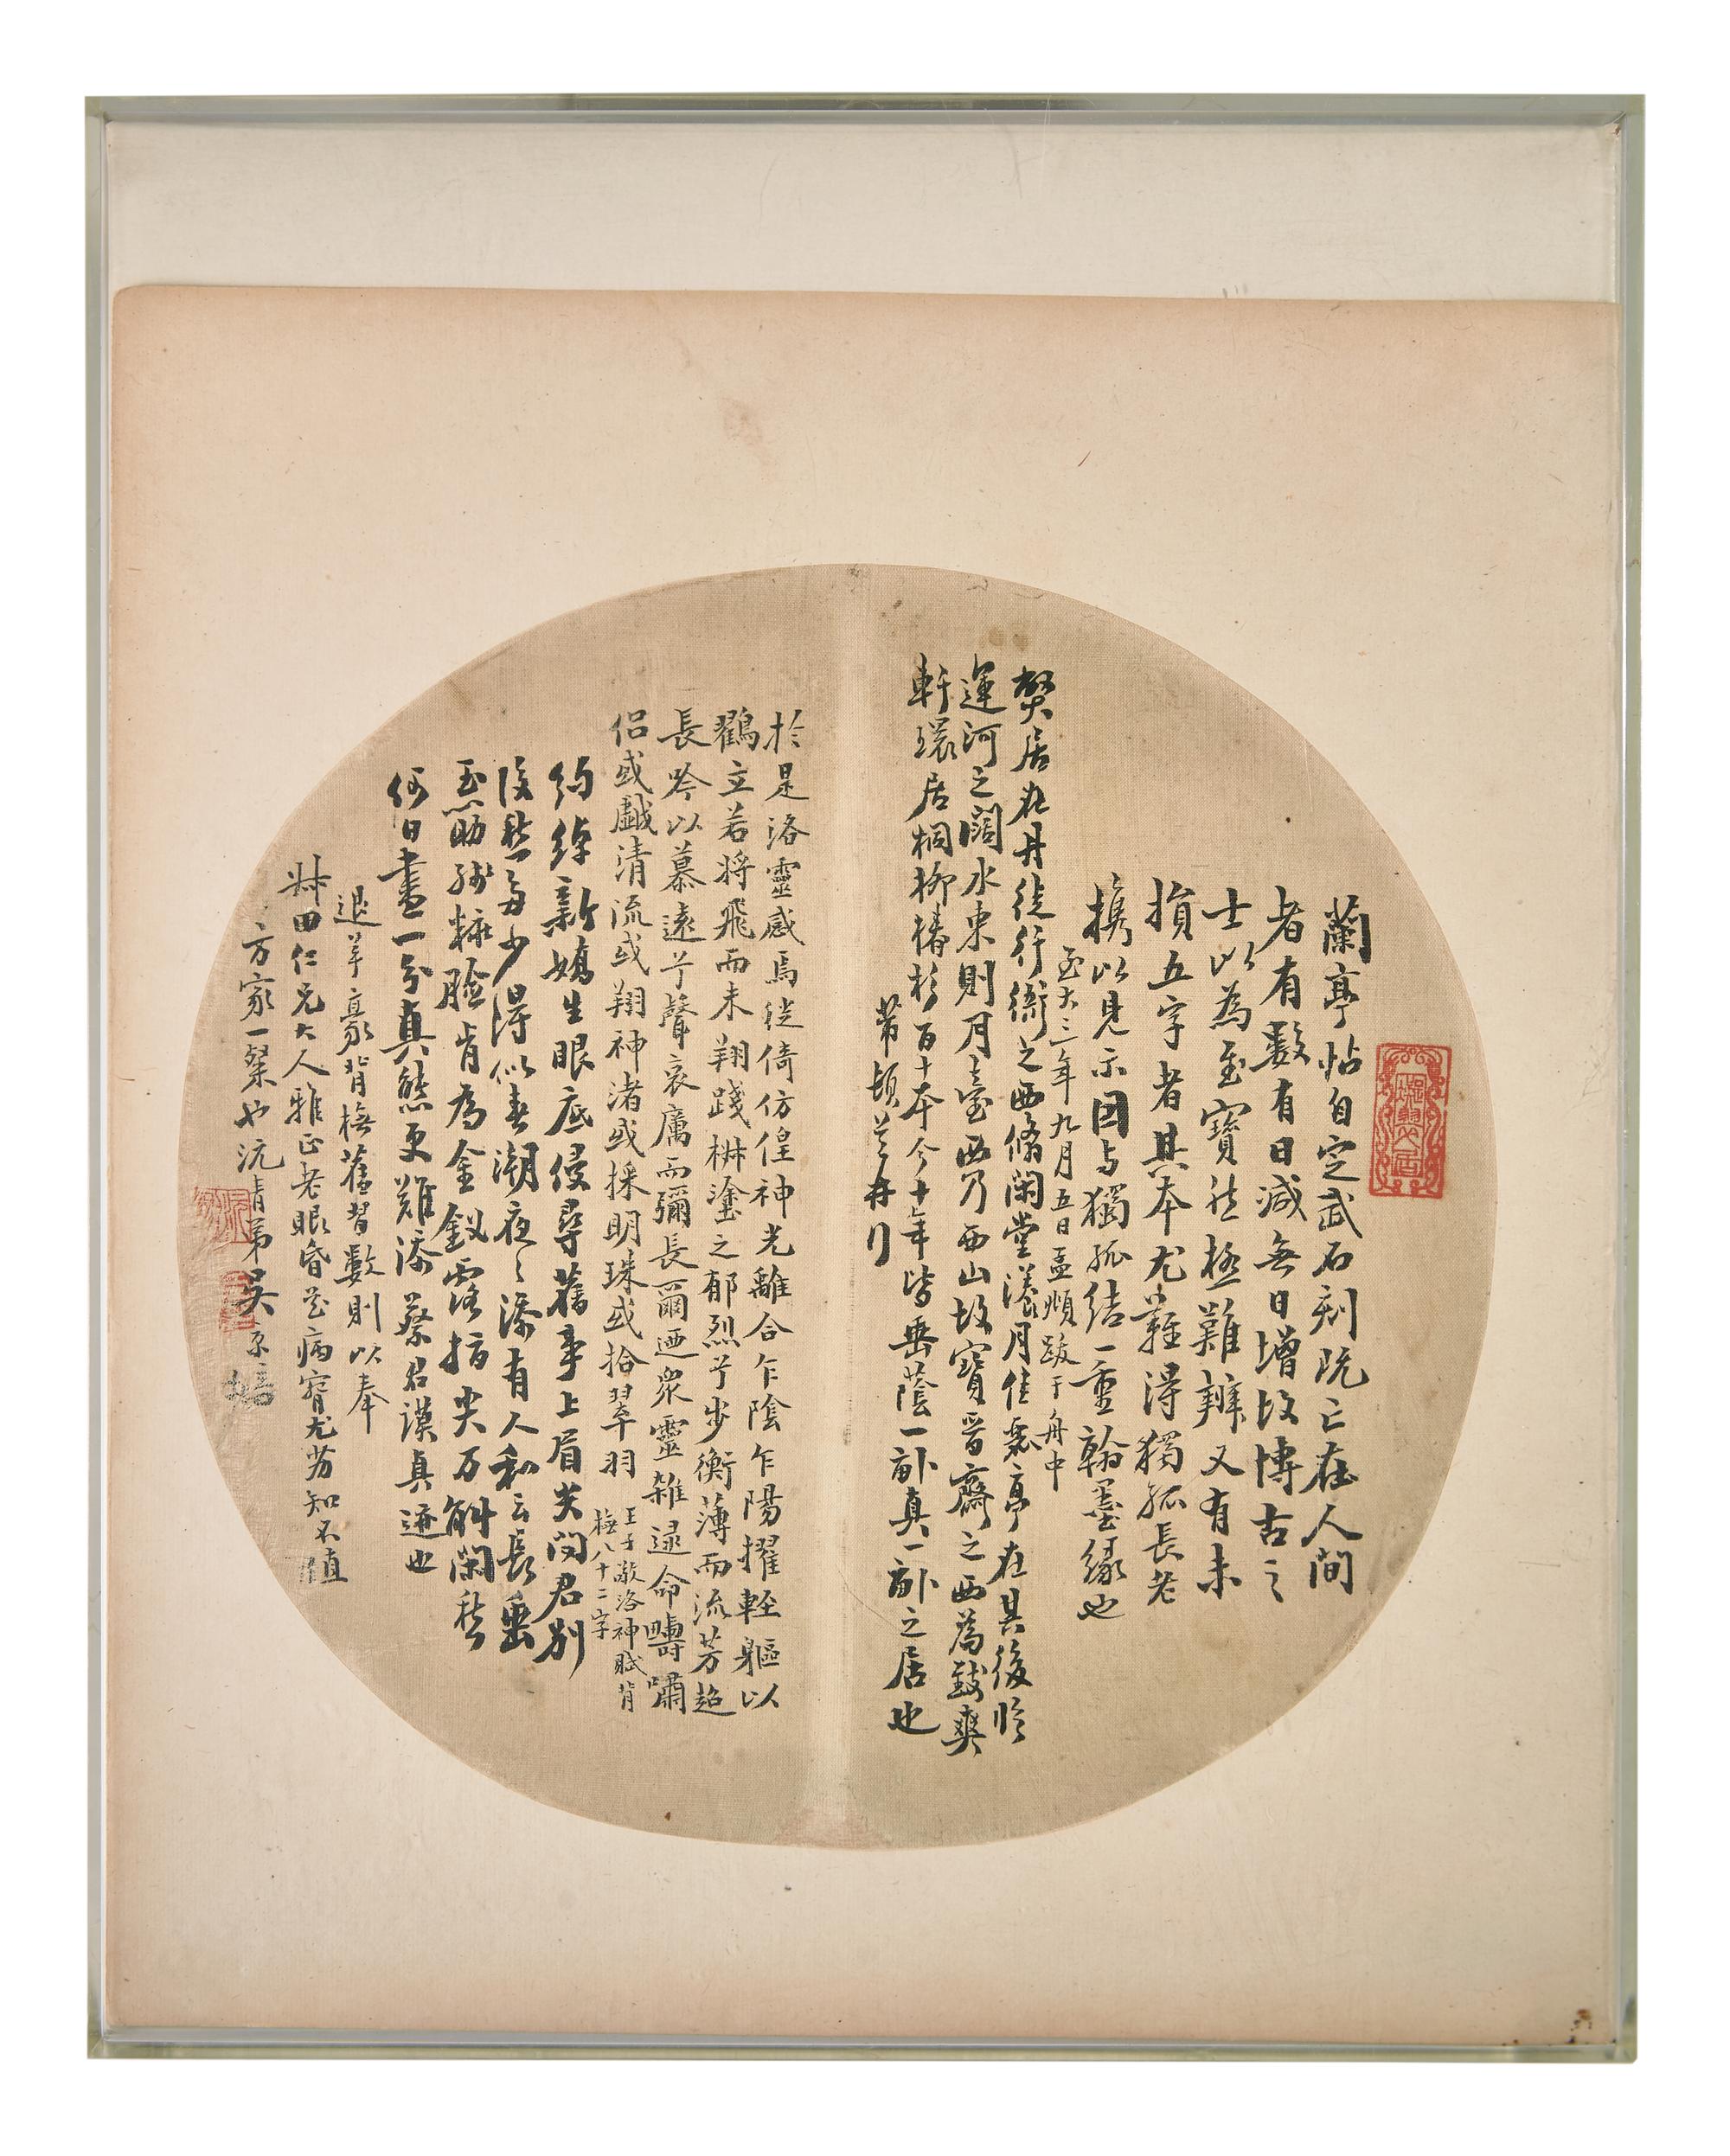 蘭亭帖自定武石刻既亡在人間
者有數有日減無日增故博古之
士以為至寶然極難辨又有未
損五字者其本尤難得獨孤長老
攜以見示因与獨孤結一重翰墨緣也
至大三年九月五日孟頫跋于舟中
弊居在丹徒行衙之西翛閑堂漾月佳麗亭在其後臨
運河之闊水東則月臺西乃西山故寶晉齋之西為致爽
軒環居桐柳椿杉百十本今十年皆垂蔭一畝真一畝之居也
芾頓首再行
於是洛靈感焉徙倚仿偟神光離合乍陰乍陽擢輕軀以
鶴立若將飛而未翔踐椒塗之郁烈兮步衡薄而流芳超
長吟以慕遠兮聲哀厲而彌長爾迺眾靈雜遝命疇嘯
侶或戲清流或翔神渚或採明珠或拾翠羽
王子敬洛神賦背
橅八十二字
綽綽新嬌生眼底侵尋舊事上眉尖問君別
後愁多少得似春潮夜々添有人和云長垂
玉筯殘粧臉肯為金釵露指尖万斛閑愁
何日盡一分真態更難添蔡君謨真迹也
退羊豪背橅舊習數則以奉
田仁兄大人雅正老眼昏花病窘尤劣知不值
方家一粲也沅青弟吳